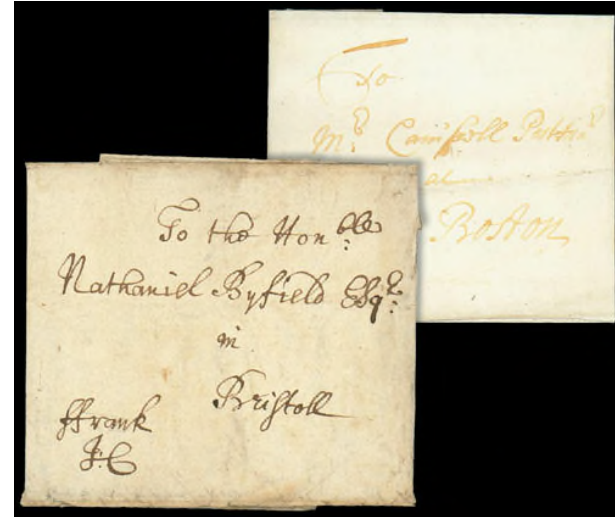 To
Mr: Campbell
at
Boston
To the Honble:
Nathaniel Byfield Esqr:
in
Bristoll
ffrank
J:C